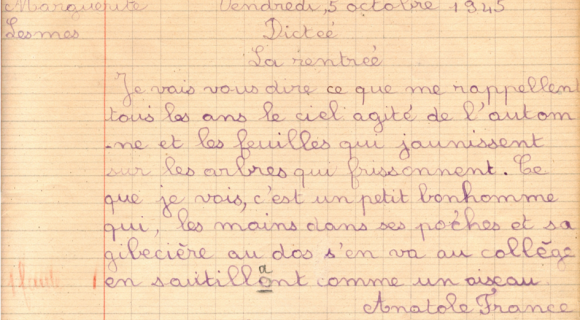 Marguerite Vendredi, 5 octobre 1945
Lesmes Dicteé
La rentreé
Je vais vous dire ce que me rappellent
tous les ans le ciel agité de l'autom
-ne et les feuilles qui jaunissent
sur les arbres qui frissonnent. Ce
que je vois, c'est un petit bonhomme
qui, les mains dans ses poches et sa
gibecière au dos s'en va au collège
a
1 faute en sautillont comme un oiseau.
Anatole France